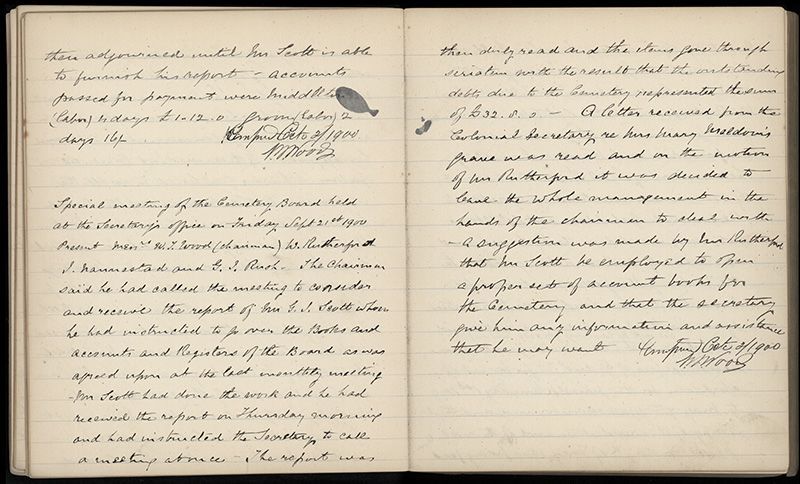 then adjourned until Mr Scott is able
to furnish his report - accounts
passed for payment were Middleton
(Labor) 4 days £1-12.0 Groom (Labor) 2
days 16/- Confirmed Octo 2/1900
W.T. Wood
Special meeting of the Cemetery Board held
at the Secretary's office on Friday Sept 21st 1900
Present Messrs W.T. Wood (chairman) W. Rutherford
J. Nannestad and G.J. Rush. The Chairman
said he had called the meeting to consider
and receive the report of Mr G.J. Scott whom
he had instructed to go over the Books and
accounts and Registers of the Board as was
agreed upon at the last monthly meeting
- Mr Scott had done the work and he had
received the report on Thursday morning
and had instructed the Secretary to call
a meeting at once - The report was
then duly read and the items gone through
seriatim with the result that the outstanding
debts due to the Cemetery represented the sum
of £32.8.0 - A letter received from the
Colonial Secretary re Mrs Mary
grave was read and on the motion
of Mr Rutherford it was decided to
leave the whole management in the
hands of the chairman to deal with
- A suggestion was made by Mr Rutherford
that Mr Scott be employed to open
a proper set of account books for
the Cemetery and that the secretary
give him any information and assistance
that he may want Confirmed Octo 2/1900
W.T. Wood